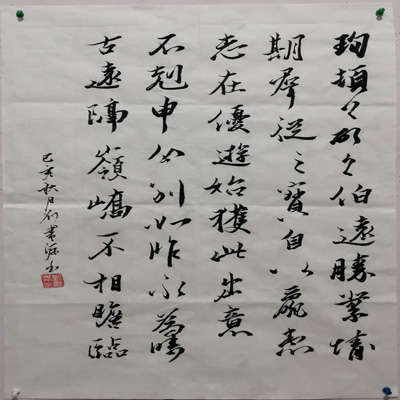 珣頓々首々伯遠勝業情
期羣從之寶自以羸患
志在優遊始獲此出意
不剋申分別如昨永為疇
古遠隔嶺嶠不相瞻臨
己亥秋月刘書源书